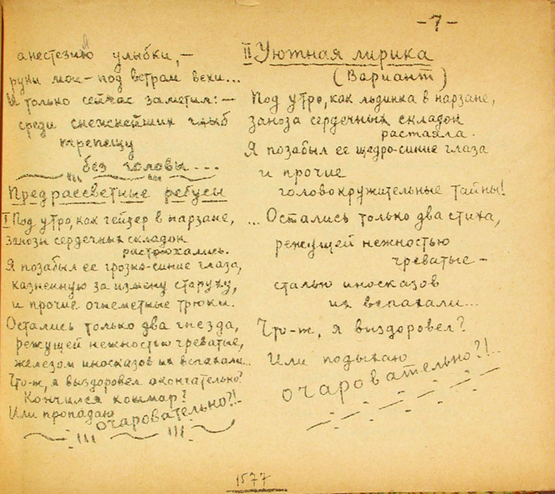 -7-
анестезию улыбки, —
руки мои — под ветрам вехи...
И только сейчас заметил: —
среди снежнейших глыб
трепещу
без головы...
Предрассветные ребусы
I Под утро, как гейзер в нарзане,
занозы сердечных складок
растрохались.
Я позабыл ее грозно-синие глаза,
казненную за измену старуху,
и прочие огнеметные трюки.
Остались только два гнезда,
режущей нежностью чреватые,
железом иносказов их вспахали...
Что-ж, я выздоровел окончательно?
Кончился кошмар?
Или пропадаю
очаровательно?!..
II Уютная лирика
(Вариант)
Под утро, как льдинка в нарзане,
заноза сердечных складок
растаяла.
Я позабыл ее щедро-синие глаза
и прочие
головокружительные тайны!
... Остались только два стиха,
режущей нежностью
чреватые —
сталью иносказов
их вспахали...
Что-ж, я выздоровел?
Или подыхаю
очаровательно?!..
1577